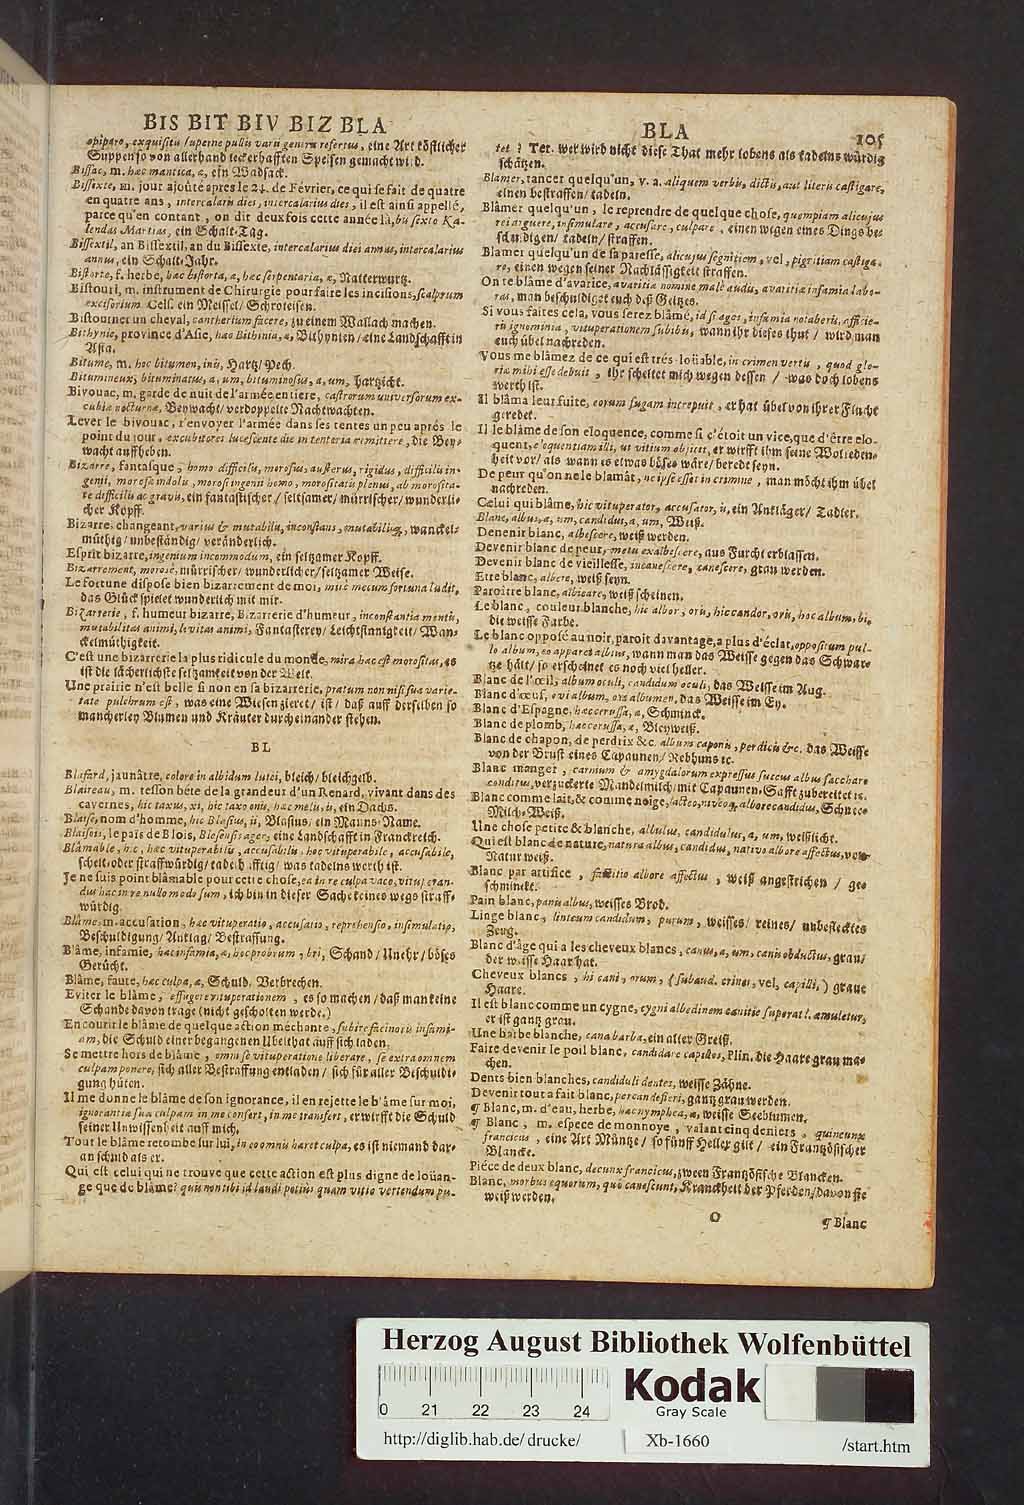 BIS BIT BIV BIZ BLA
opiparo, exquisito superne pullis varii generis refertus, eine Art köstlicher
Suppen so von allerhand leckerhafften Speisen gemacht wird.
Bissac, m. hæc mantica, æ, ein Wadsack.
Bissexte, m. jour ajoûté apres le 24. de Février, ce qui se fait de quatre
en quatre ans, intercalaris dies, intercalarius dies, il est ainsi appellé,
parce qu'en contant, on dit deux fois cette année là, bis sexto Ka-
lendas Martias, ein Schalt-Tag.
Bissextil, an Bissextil, an du Bissexte, intercalarius diei annus, intercalarius
annus, ein Schalt-Jahr.
Bistorte, f. herbe, hæc bistorta, æ, hæc serpentaria, æ, Natterwurtz.
Bistouri, m. instrument de Chirurgie pour faire les incisions, scalprum
excisorium Cels. ein Meissel/ Schroteisen.
Bistourner un cheval, cantherium facere, zu einem Wallach machen.
Bithynie, province d'Asie, hæc Bithinia, æ, Bithynien/ eine Landschafft in
Asia.
Bitume, m. hoc bitumen, inis, Hartz/ Pech.
Bitumineux, bituminatus, a, um, bituminosus, a, um, hartzicht.
Bivouac, m. garde de nuit de l'armée entiere, castrorum universorum ex-
cubiæ nocturnæ, Beywacht/ verdoppelte Nachtwachten.
Lever le bivouac, r'envoyer l'armée dans ses tentes un peu aprés le
point du jour, excubitores lucescente die in tentoria remittere, die Bey-
wacht auffheben.
Bizarre, fantasque, homo difficilis, morosus, austerus, rigidus, difficilis in-
genii, morosæ indolis, morosi ingenii homo, morositatis plenus, ab morosita-
te difficilis ac gravis, ein fantastischer/ seltsamer/ mürrischer/ wunderli-
cher Kopff.
Bizarre, changeant, varius & mutabilis, inconstans, mutabilisq;, wanckel-
müthig/ unbeständig/ veränderlich.
Esprit bizarre, ingenium incommodum, ein seltzamer Kopff.
Bizarrement, morosè, mürrischer/ wunderlicher/ seltzamer Weise.
Le fortune dispose bien bizarrement de moi, mirè mecum fortuna ludit,
das Glück spielet wunderlich mit mir.
Bizarrerie, f. humeur bizarre, Bizarrerie d'humeur, inconstantia mentis,
mutabilitas animi, levitas animi, Fantasterey/ Leichtsinnigkeit/ Wan-
ckelmüthigkeit.
C'est une bizarrerie la plus ridicule du monde, mira hæc est morositas, es
ist die lächerlichste seltzamkeit von der Welt.
Une prairie n'est belle si non en sa bizarrerie, pratum non nisi sua varie-
tate pulchrum est, was eine Wiesen zieret/ ist/ daß auff derselben so
mancherley Blumen und Kräuter durcheinander stehen.
BL
Blafard, jaunâtre, colore in albidum lutei, bleich/ bleichgelb.
Blaireau, m. tesson béte de la grandeur d'un Renard, vivant dans des
cavernes, hic taxus, xi, hic taxo onis, hæc melis, is, ein Dachs.
Blaise, nom d'homme, hic Blasius, ii, Blasius/ ein Manns-Name.
Blaisois, le païs de Blois, Blesensis ager, eine Landschafft in Franckreich.
Blâmable, h.c, hæc vituperabilis, accusabilis, hoc vituperabile, accusabile,
schelt-oder straffwürdig/ tadelhafftig/ was tadelns werth ist.
Je ne suis point blâmable pour cette chose, ea in re culpa vaco, vituperan-
dus hac in re nullo modo sum, ich bin in dieser Sache keines wegs straff-
würdig.
Blâme, m. accusation, hæc vituperatio, accusatio, reprehensio, insimulatio,
Beschuldigung/ Anklag/ Bestraffung.
Blâme, infamie, hæc infamia, æ, hoc probrum, bri, Schand/ Unehr/ böses
Gerücht.
Blâme, faute, hæc culpa, æ, Schuld, Verbrechen.
Eviter le blâme, effugere vituperationem, es so machen/ daß man keine
Schande davon trage (nicht gescholten werde.)
Encourir le blâme de quelque action méchante, subire facinoris infami-
am, die Schuld einer begangenen Ubelthat auff sich laden.
Se mettre hors de blâme, omni se vituperatione liberare, se extra omnem
culpam ponere, sich aller Bestraffung entladen/ sich für aller Beschuldi-
gung hüten.
Il me donne le blâme de son ignorance, il en rejette le b'âme sur moi,
ignorantiæ suæ culpam in me consert, in me transfert, er wirfft die Schuld
seiner Unwissenheit auff mich.
Tout le blâme retombe sur lui, in eo omnis hæret culpa, es ist niemand dar-
an schuld als er.
Qui est celui qui ne trouve que cette action est plus digne de loüan-
ge que de blâme? quis non tibi id laudi potius quam vitio vertendum pu-
BLA
105
tet? Ter. wer wird nicht diese That mehr lobens als tadelns würdig
schätzen.
Blâmer, tancer quelqu'un, v. a. aliquem verbis, dictis, aut literis castigare,
einen bestraffen/ tadeln.
Blâmer quelqu'un, le reprendre de quelque chose, quempiam alicujus
rei arguere, insimulare, accusare, culpare, einen wegen eines Dings be-
schuldigen/ tadeln/ straffen.
Blamer quelqu'un de sa paresse, alicujus segnitiem, vel, pigritiam castiga-
re, einen wegen seiner Nachlässigkeit straffen.
On te blâme d'avarice, avaritiæ nomine malè audis, avaritiæ infamia labo-
ras, man beschuldiget euch deß Geitzes.
Si vous faites cela, vous serez blâmé, id si ages, infamia notaberis, afficie-
ris ignominia, vituperationem subibis, wann ihr dieses thut/ wird man
euch übel nachreden.
Vous me blâmez de ce qui est trés loüable, in crimen vertis, quod glo-
riæ mihi esse debuit, ihr scheltet mich wegen dessen/ was doch lobens
werth ist.
Il blâma leur fuite, eorum fugam increpuit, er hat übel von ihrer Flucht
geredet.
Il le blâme de son eloquence, comme si ç'étoit un vice, que d'être elo-
quent, eloquentiam illi, ut vitium objicit, er wirfft ihm seine Wolreden-
heit vor/ als wann es etwas böses wäre/ beredt seyn.
De peur qu'on ne le blamât, ne ipse esset in crimine, man möcht ihm übel
nachreden.
Celui qui blâme, hic vituperator, accusator, is, ein Ankläger/ Tadler.
Blanc, albus, a, um, candidus, a, um, Weiß.
Devenir blanc, albescere, weiß werden.
Devenir blanc de peur, metu exalbescere, aus Furcht erblassen.
Devenir blanc de vieillesse, incanescere, canescere, grau werden.
Etre blanc, albere, weiß seyn.
Paroître blanc, albicare, weiß scheinen.
Le blanc, couleur blanche, hic albor, oris, hic candor, oris, hoc album, bi,
die weisse Farbe.
Le blanc opposé au noir, paroit davantage, a plus d'éclat, oppositum pul-
lo album, eo apparet albius, wann man das Weisse gegen das Schwar-
tze hält/ so erscheinet es noch viel heller.
Blanc de l'œil, album oculi, candidum oculi, das Weisse im Aug.
Blanc d'œuf, ovi album, ova albumen, das Weisse im Ey.
Blanc d'Espagne, hæc cerussa, æ, Schminck.
Blanc de plomb, hæc cerussa, æ, Bleyweiß.
Blanc de chapon, de perdrix &c. album caponis, perdicis &c. das Weisse
von der Brust eines Capaunen/ Rebhuns rc.
Blanc manger, carnium & amygdalorum expressus succus albus saccharo
conditus, verzuckerte Mandelmilch/ mit Capaunen-Safft zubereitet rc.
Blanc comme lait, & comme neige, lacteo, niveoq; albore candidus, Schnee-
Milch-Weiß.
Une chose petite & blanche, albulus, candidulus, a, um, weißlicht.
Qui est blanc de nature, natura albus, candidus, nativo albore affectus, von
Natur weiß.
Blanc par artifice, factitio albore affectus, weiß angestrichen/ ge-
schminckt.
Pain blanc, panis albus, weisses Brod.
Linge blanc, linteum candidum, purum, weisses/ reines/ unbeflecktes
Zeug.
Blanc d'âge qui a les cheveux blancs, canus, a, um, canis obductus, grau/
der weisse Haar hat.
Cheveux blancs, hi cani, orum, (subaud. crines, vel, capilli,) graue
Haare.
Il est blanc comme un cygne, cygni albedinem canitie superat l. æmulatur,
er ist gantz grau.
Une barbe blanche, cana barba, ein alter Greiß.
Faire devenir le poil blanc, candidare capillos, Plin. die Haare grau ma-
chen.
Dents bien blanches, candiduli dentes, weisse Zähne.
Devenir tout a fait blanc, percandefieri, gantz grau werden.
¶ Blanc, m. d'eau, herbe, hæc nymphæa, æ, weisse Seeblumen.
¶ Blanc, m. espece de monnoye, valant cinq deniers, quincunx
francicus, eine Art Müntze/ so fünff Heller gilt/ ein Frantzösischer
Blancke.
Piéce de deux blanc, decunx francicus, zween Frantzösische Blancken.
Blanc, morbus equorum, quo canescunt, Kranckheit der Pferden/ davon sie
weiß werden.
O
¶ Blanc
Herzog August Bibliothek Wolfenbüttel
Kodak
Gray Scale
0 21 22 23 24
http://diglib.hab.de/drucke/ Xb-1660 /start.htm